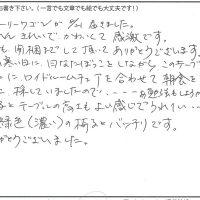 お書き下さい。(一言でも文章でも絵でも大丈夫です!)
ーリーワゴンが 届きました。
へん きれいで かわいくて 感激です。
も 開梱までして 頂いて ありがとうございます。
い日に 日なたぼっこをしながら このテーブ
に ロイドルームチェアを合わせて 朝食を
に 探していましたので、
とテーブルの高さも よい感じでうれしい
緑色(濃い)の椅子と バッチリです。
がとうございました。